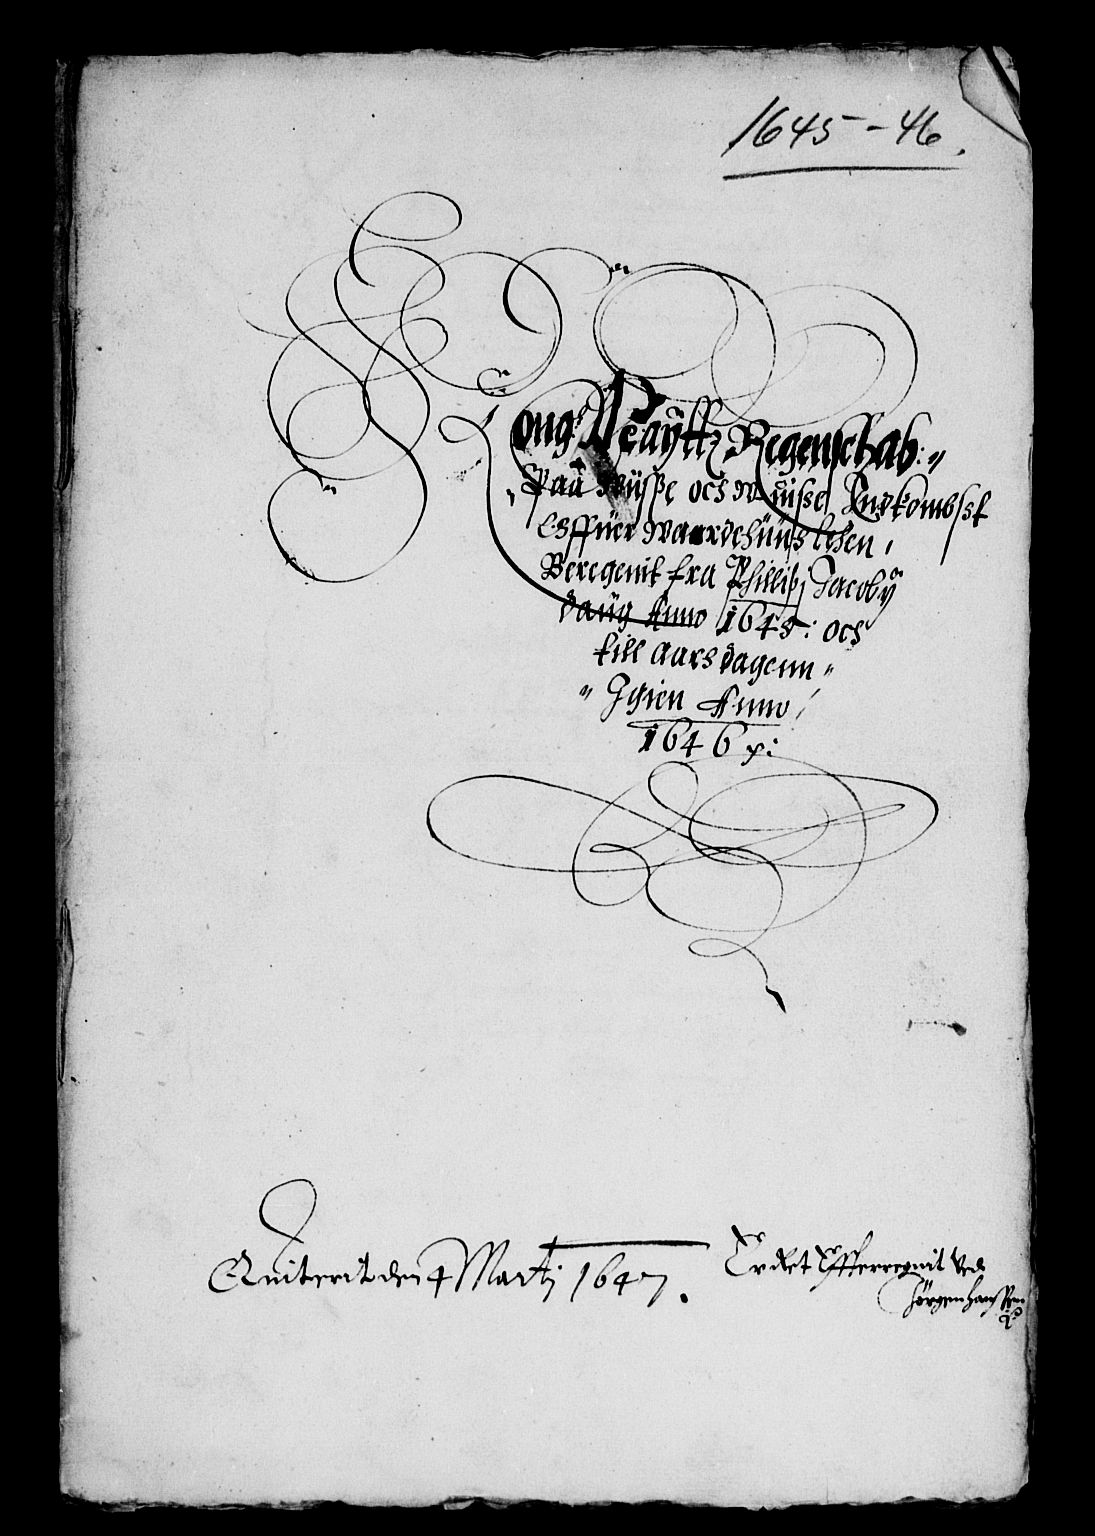 1645-46.
Kong: Mayttz Regenschab:
Paa Wisse och Uuisse Indkombst
Offuer Waardehuus lehen,
Beregenit fra Phillipi Jacobÿ
daug Anno 1645: och
till aarsdagenn
Igien Anno
1646 p:
Quiterit den 4 Martj 1647.
Er dket Effterregnit Ved
Jørgen Hanssen